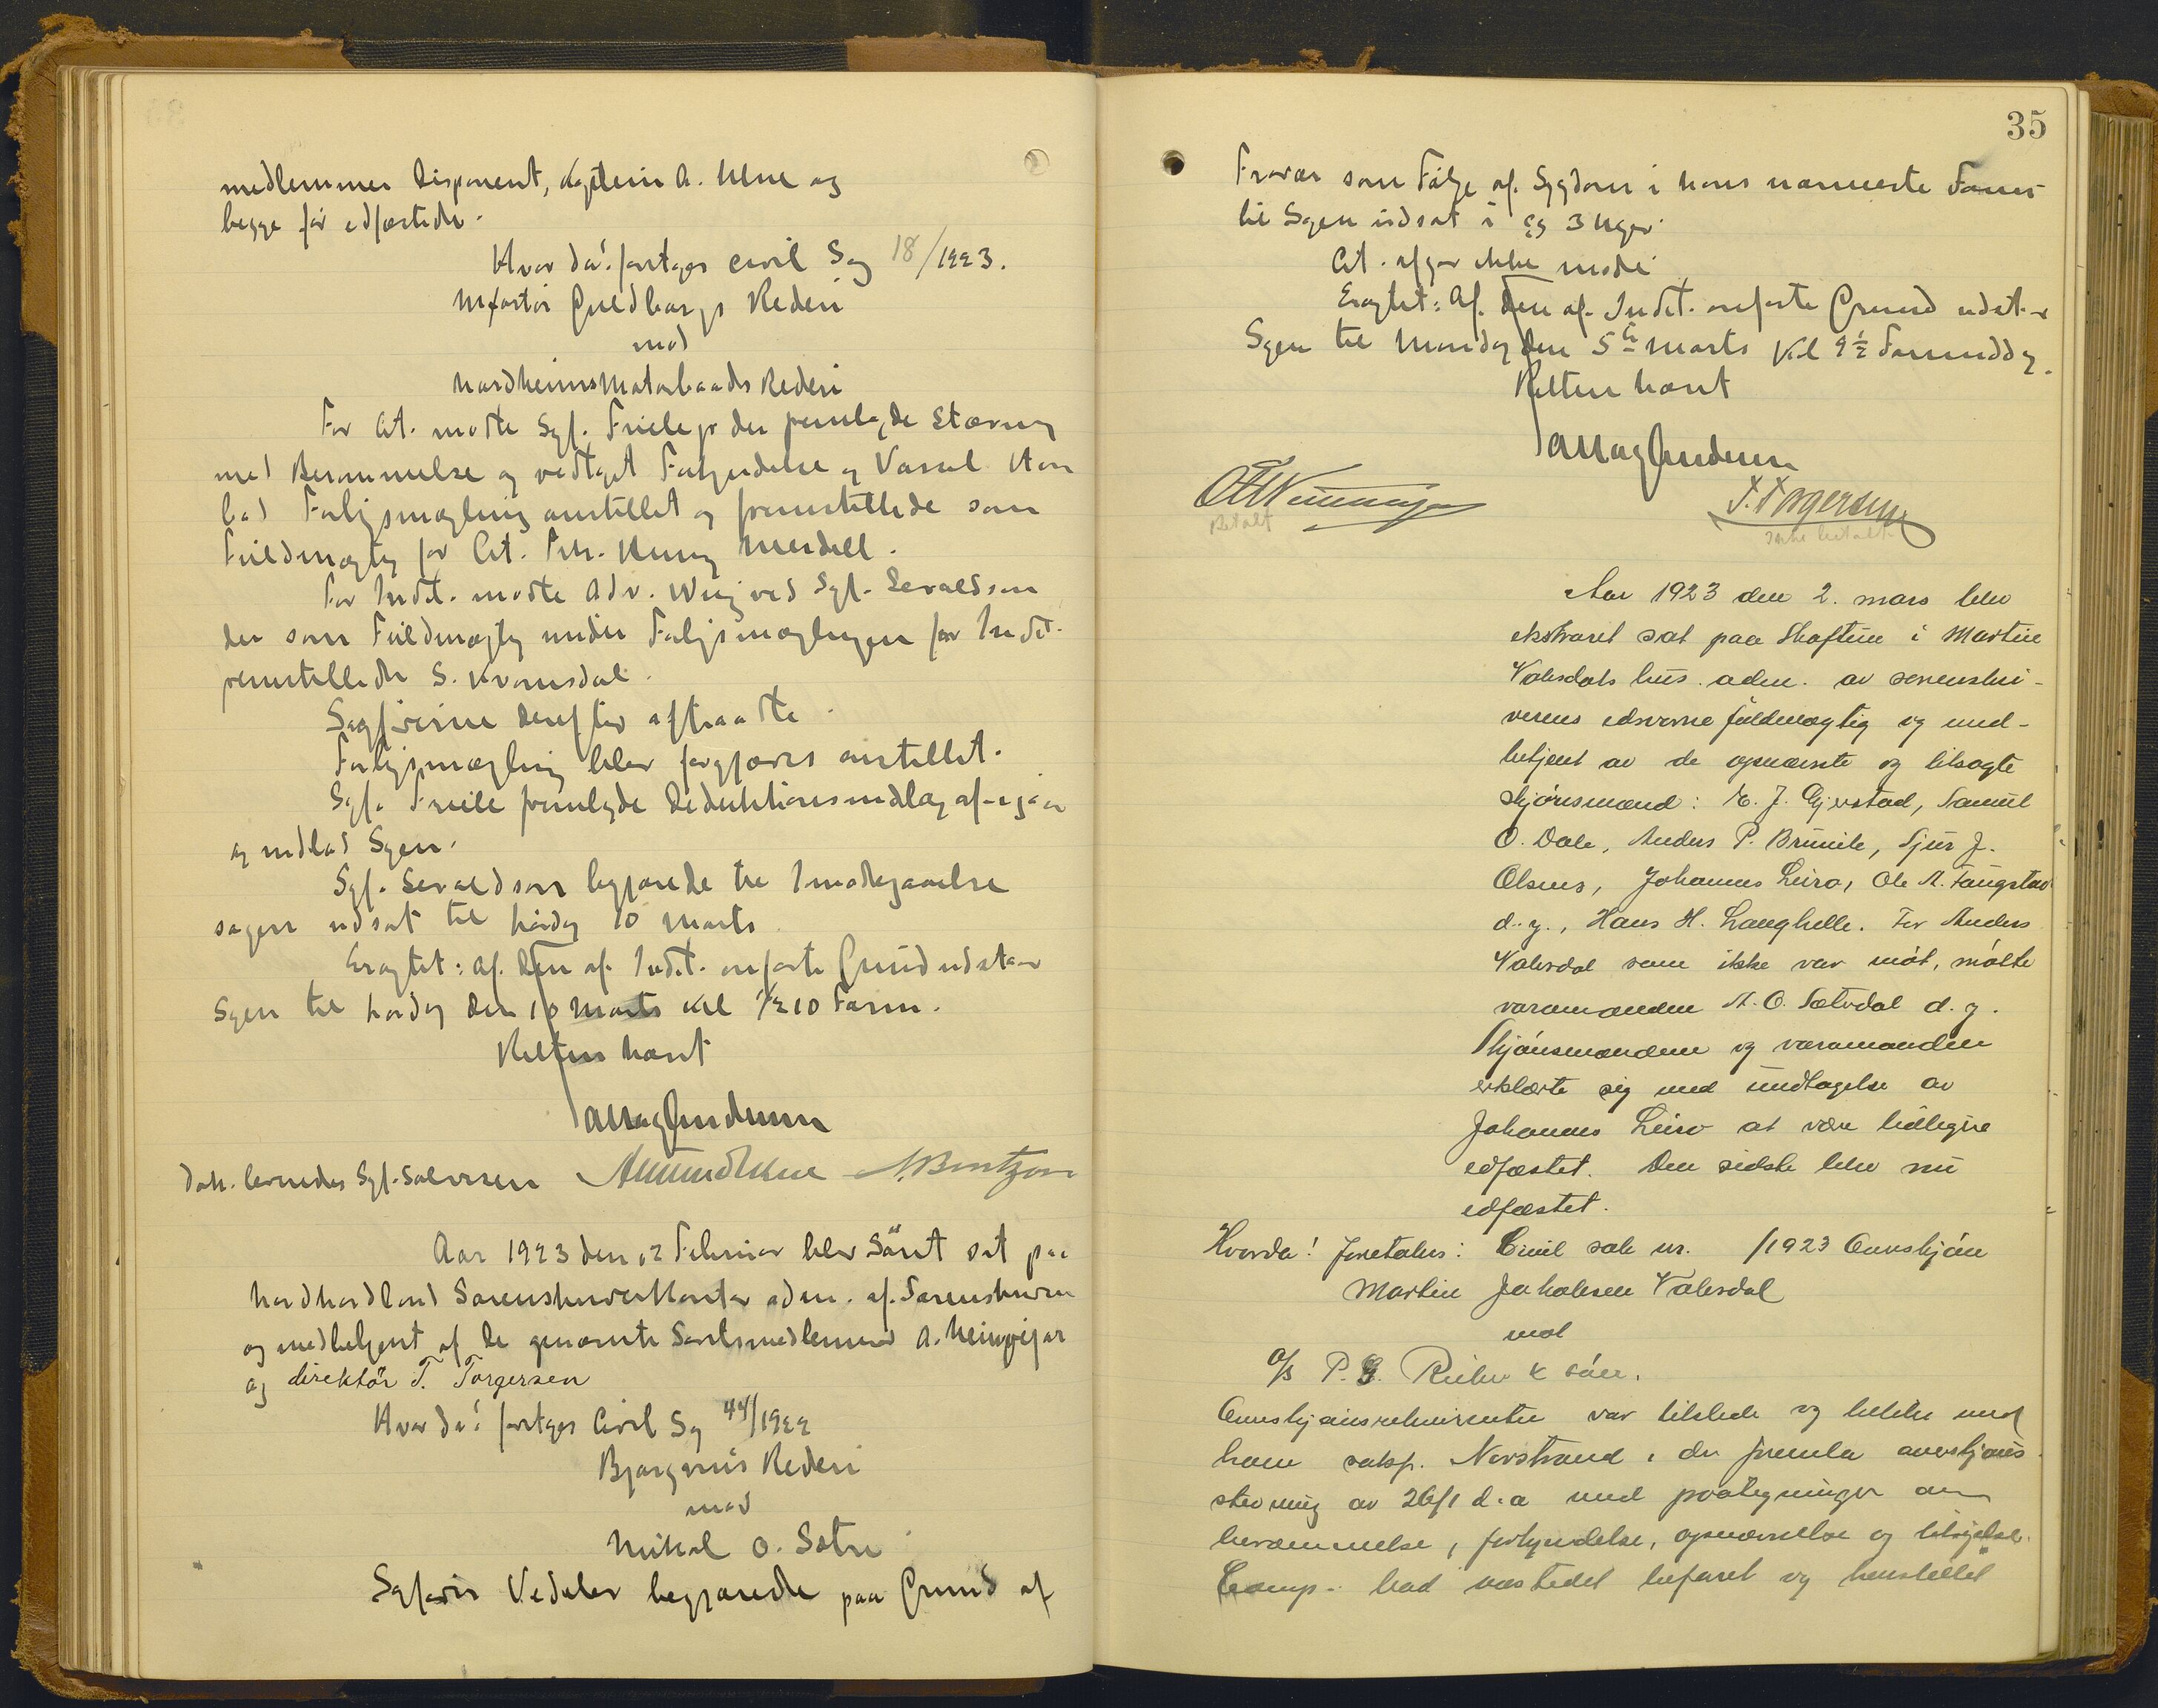 medlemmer Disponent, Kaptein A. Utne og
begge før edfæstede.
Hvorda! foretoges civil Sag 18/1923.
Guldbergs Rederi
mod
Nordheims Motorbaads Rederi
For Cit. mødte Sgf. Friele jr der fremlagde Stævning
med Berammelse og vedtaget Forkyndelse og Varsel. Han
bad Forligsmægling anstillet og fremstillede som
Fuldmægtig for Cit.
For Indst. mødte Adv. Wiig ved Sgf. Sevaldson
der som Fuldmægtig under Forligsmæglingen for Indst.
fremstillede S. Kvamsdal.
Sagførerne derefter aftraadte.
Forligsmægling blev forgjæves anstillet.
Sgf. Friele fremlagde Deduktionsindlæg af igaar
og indlod Sagen.
Sgf. Sevaldson begjærede til Imødegaaelse
sagen udsat til Lørdag 10 Marts.
Eragtet: Af den af Indst. anførte Grund udstaar
Sagen til Lørdag den 10 Marts Kl ½10 Form.
Retten hævet
A Mag Gundersen
Dok. laantes Sgf. Salvesen Amund Utne A. Berntzon
Aar 1923 den 12 Februar blev Søret sat paa
Nordhordland Sorenskriverkontor adm. af Sorenskriveren
og medbetjent af de opnævnte Søretsmedlemmer A.
og direktør T. Torgersen
Hvorda! foretoges Civil Sag 44/1922
Bjørgvins Rederi
mod
Mikal O. Sætre
Sagfører Vedeler begjærede paa Grund af
35
Fravær som Følge af Sygdom i hans nærmeste Fami-
lie Sagen udsat i ca 3 Uger.
Cit. afgav ikke møde.
Eragtet: Af den af Indst. anførte Grund udstaar
Sagen til Mandag den 5te Marts Kl 9½ Formiddag.
Retten hævet
A Mag Gundersen
T. Torgersen
Betalt
Ikke betalt
Aar 1923 den 2. mars blev
ekstraret sat paa Skaftun i Martin
Valesdals hus. adm. av sorenskri-
verens edsvorne fuldmægtig og med-
betjent av de opnævnte og tilsagte
skjønsmænd: E. J. Gjerstad, Samuel
O. Dale, Anders P. Bruvik, Sjur J.
Olsnes, Johannes Leiro, Ole A. Taugstad
d.y., Hans H. Langhelle. For Anders
Valesdal som ikke var møt, møtte
varamanden A. O. Sætvdal d.y.
Skjønsmændene og varamanden
erklærte sig med undtagelse av
Johannes Leiro at være tidligere
edfæstet. Den sidste blev nu
edfæstet.
Hvorda! foretokes: Civil sak nr. /1923 Overskjøn
Martin Jakobsen Valesdal
mot
A/S P. G. Rieber & søn.
Overskjønsrekvirenten var tilstede og likeledes med
ham saksf. Norstrand, der fremla overskjøns-
stevning av 26/1 d.a med paategninger om
berammelse, forkyndelse, opnævnelse og tilsigelse.
Comp. bad aastedet befaret og henstillet